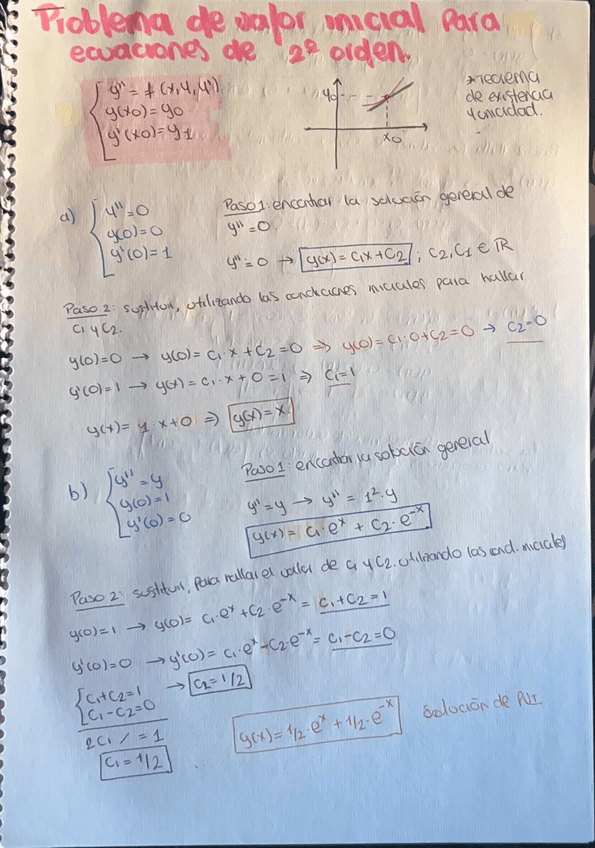 Problema de valor inicial para
ecuaciones de 2º orden.
y'' = f(x,y,y')
y(x0)=y0
y'(x0)=y1
y0
x0
*Teorema
de existencia
y unicidad.
a) y''=0
y(0)=0
y'(0)=1
Paso 1: encontrar la solución general de
y''=0.
y''=0 → y(x)=c1x+c2 ; c2,c1 ∈ ℝ
Paso 2: sustituir, utilizando las condiciones iniciales para hallar
c1 y c2.
y(0)=0 → y(0)= c1·x+c2=0 ⇒ y(0)=c1·0+c2=0 → c2=0
y'(0)=1 → y(x)=c1·x+0=1 ⇒ c1=1
y(x)= 1·x+0 ⇒ y(x)=x
b) y''=y
y(0)=1
y'(0)=0
Paso 1: encontrar la solución general
y''=y → y''=1²·y
y(x)= c1·e^x + c2·e^-x
Paso 2: sustituir, para hallar el valor de c1 y c2. utilizando las cond. iniciales
y(0)=1 → y(0)= c1·e^x+c2·e^-x = c1+c2=1
y'(0)=0 → y'(0)= c1·e^x-c2·e^-x = c1-c2=0
c1+c2=1 → c2=1/2
c1-c2=0
2c1 / = 1
c1=1/2
y(x)=1/2·e^x+1/2·e^-x Solución de PVI